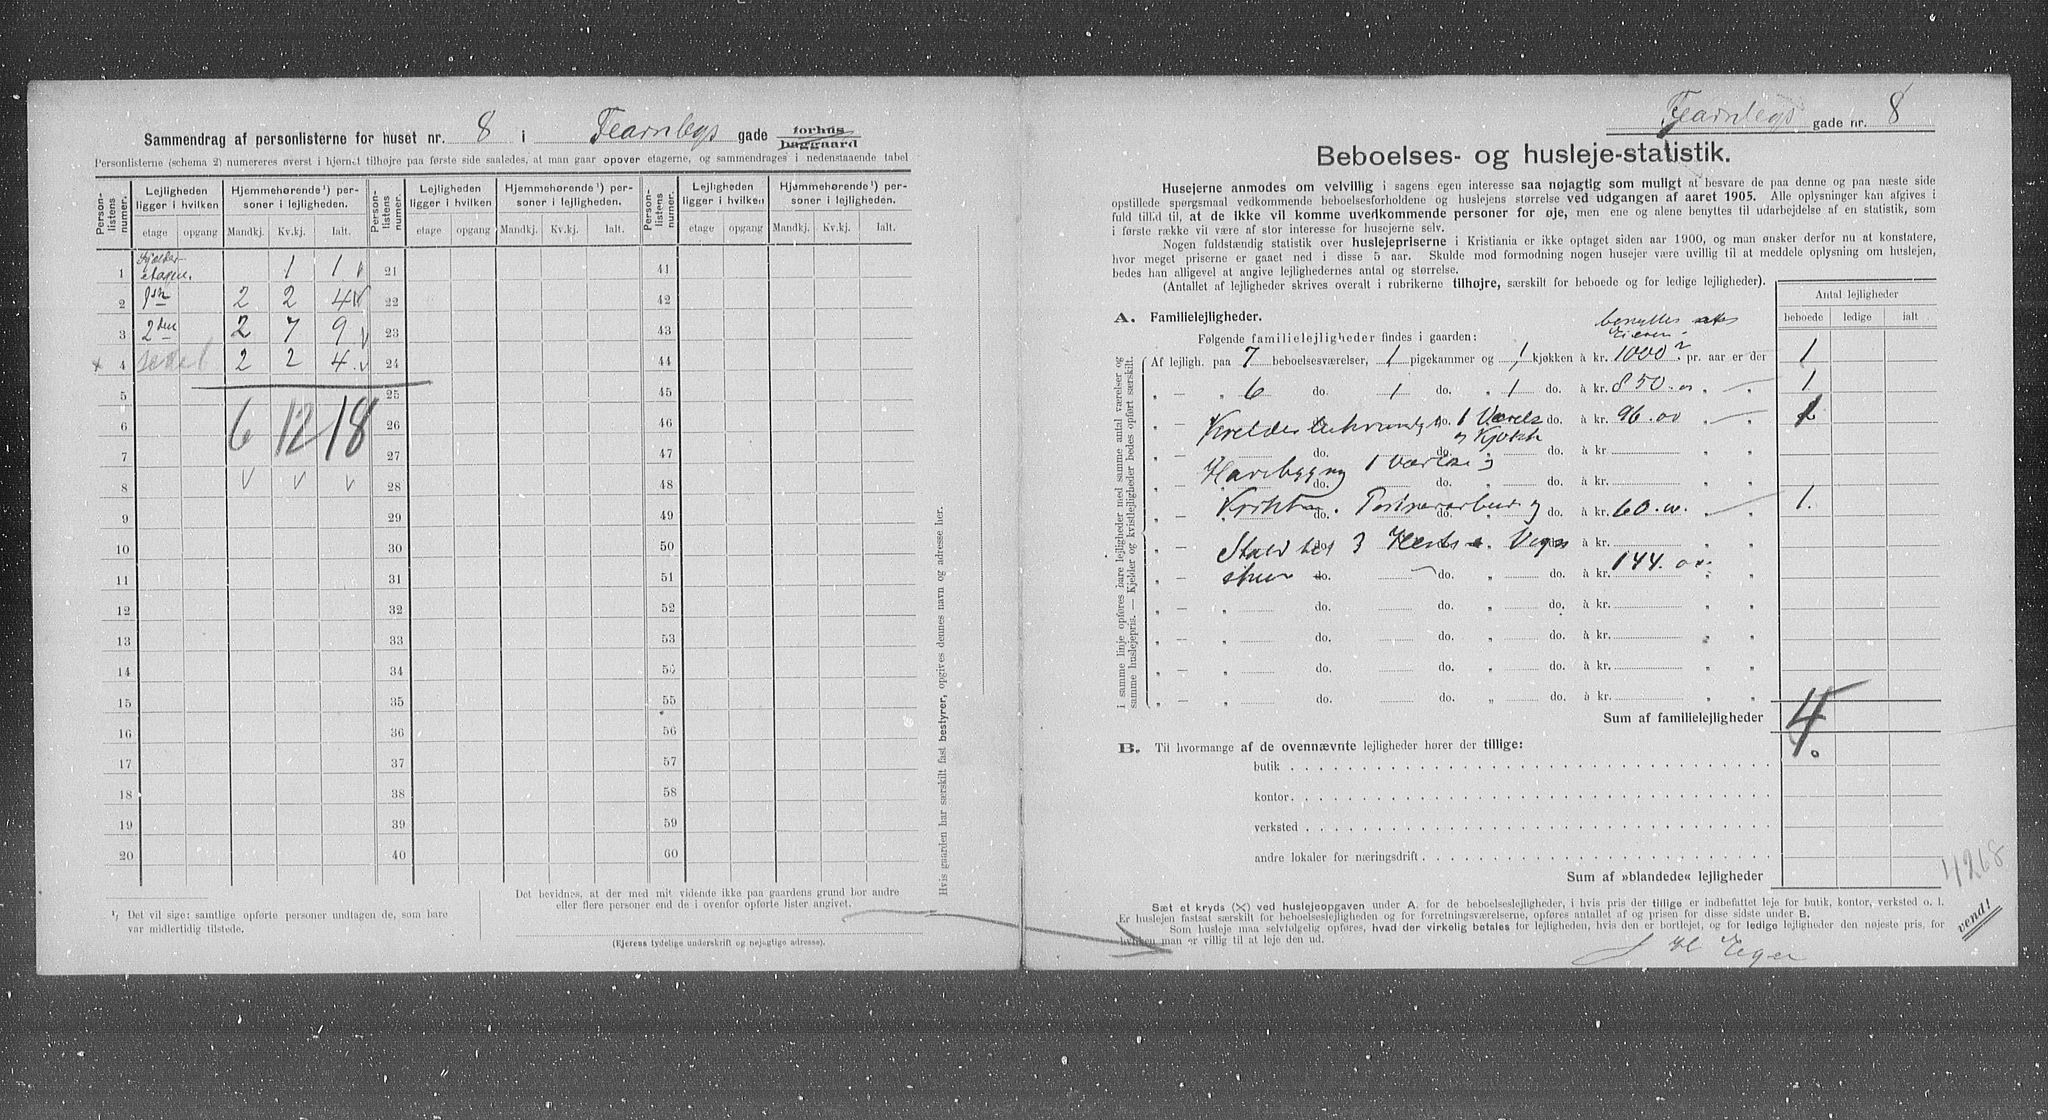 Sammendrag af personlisterne for huset nr. 8 i Fearnleys gade forhus baggaard
Personlisterne (schema 2) numereres øverst i hjørnet tilhøjre paa første side saaledes, at man gaar opover etagerne, og sammendrages i nedenstaaende tabel
Person-listens numer. Lejligheden ligger i hvilken Hjemmehørende ¹) personer i lejligheden. Person-listens numer. Lejligheden ligger i hvilken Hjemmehørende ¹) personer i lejligheden. Person-listens numer. Lejligheden ligger i hvilken Hjemmehørende ¹) personer i lejligheden.
etage opgang Mandkj. Kv.kj. Ialt. etage opgang Mandkj. Kv.kj. Ialt. etage opgang Mandkj. Kv.kj. Ialt.
1 Kjelder etagen. 1 1 21 41
2 1ste 2 2 4 22 42
3 2den 2 7 9 23 43
x 4 2 2 4 24 44
5 25 45
6 6 12 18 26 46
7 27 47
8 28 48
9 29 49
10 30 50
11 31 51
12 32 52
13 33 53
14 34 54
15 35 55
16 36 56
17 37 57
18 38 58
19 39 59
20 40 60
¹) Det vil sige: samtlige opførte personer undtagen de, som bare
var midlertidig tilstede.
Det bevidnes, at der med mit vidende ikke paa gaardens grund bor andre
eller flere personer end de i ovenfor opførte lister angivet.
(Ejerens tydelige underskrift og nøjagtige adresse).
Hvis gaarden har særskilt fast bestyrer, opgives dennes navn og adresse her.
Fearnleys gade nr. 8
Beboelses- og husleje-statistik.
Husejerne anmodes om velvillig i sagens egen interesse saa nøjagtig som muligt at besvare de paa denne og paa næste side
opstillede spørgsmaal vedkommende beboelsesforholdene og huslejens størrelse ved udgangen af aaret 1905. Alle oplysninger kan afgives i
fuld tillid til, at de ikke vil komme uvedkommende personer for øje, men ene og alene benyttes til udarbejdelse af en statistik, som
i første række vil være af stor interesse for husejerne selv.
Nogen fuldstændig statistik over huslejepriserne i Kristiania er ikke optaget siden aar 1900, og man ønsker derfor nu at konstatere,
hvor meget priserne er gaaet ned i disse 5 aar. Skulde mod formodning nogen husejer være uvillig til at meddele oplysning om huslejen,
bedes han alligevel at angive lejlighedernes antal og størrelse.
(Antallet af lejligheder skrives overalt i rubrikerne tilhøjre, særskilt for beboede og for ledige lejligheder).
Antal lejligheder
beboede ledige ialt
A. Familielejligheder.
benyttes af Eieren
Følgende familielejligheder findes i gaarden:
Af lejligh. paa 7 beboelsesværelser, 1 pigekammer og 1 kjøkken à kr. 1000 pr. aar er der 1
„ — „ 6 do. 1 do. „ 1 do. à kr. 850.00 „ „ 1
„ — Kjelder do. 1 Værels do. à kr. 96.00 „ „ 1
og Kjøkk
„ — „ do. do. „ do. à kr. „ „
Havebygng 1 værelse
„ — „ do. do. „ do. à kr. „ „
„ — do. do. „ do. à kr. 60.00 „ „ 1.
„ — Stald til 3 Heste Vogn do. à kr. „ „
„ — skur do. do. „ do. à kr. 144.00 „ „
„ — „ do. do. „ do. à kr. „ „
„ — „ do. do. „ do. à kr. „ „
„ — „ do. do. „ do. à kr. „ „
„ — „ do. do. „ do. à kr. „ „
I samme linje opføres bare lejligheder med samme antal værelser og
samme huslejepris. — Kjelder og kvistlejligheder bedes opført særskilt.
Sum af familielejligheder 4.
B. Til hvormange af de ovennævnte lejligheder hører der tillige:
butik
kontor
verksted
andre lokaler for næringsdrift
Sum af »blandede« lejligheder
4268
Sæt et kryds (×) ved huslejeopgaven under A. for de beboelseslejligheder, i hvis pris der tillige er indbefattet leje for butik, kontor, verksted o. l.
Er huslejen fastsat særskilt for beboelseslejligheden og for forretningsværelserne, opføres antallet af og prisen for disse sidste under B.
Som husleje maa selvfølgelig opføres, hvad der virkelig betales for lejligheden, hvis den er bortlejet, og for ledige lejligheder den nøjeste pris, for
hvilken man er villig til at leje den ud.
vend!
H Eger